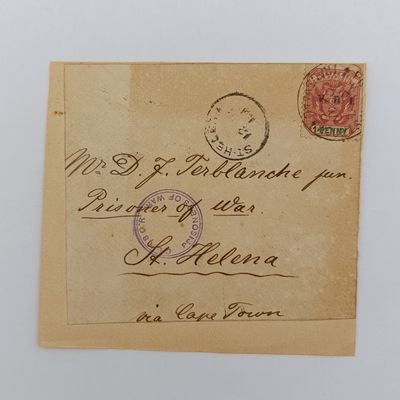 ST. HELENA
1 PENNY
Mr D. J. Terblanche jun.
Prisoner of War.
PRISONERS OF WAR
St. Helena
via Cape Town